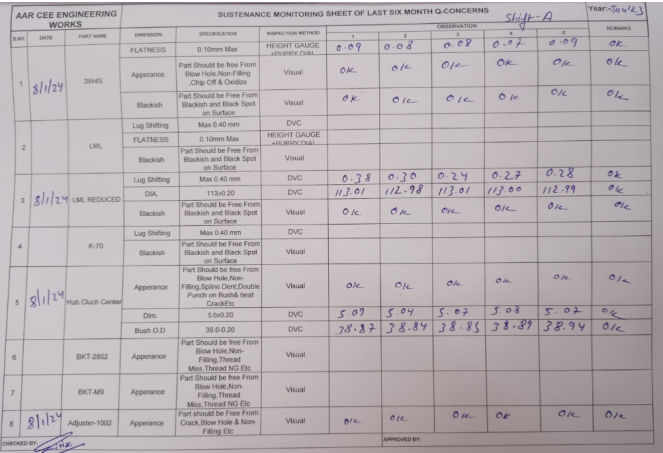 AAR CEE ENGINEERING WORKS SUSTENANCE MONITORING SHEET OF LAST SIX MONTH Q-CONCERNS Shift-A Year:-Jan/23
S.NO. DATE PART NAME DIMENSION SPECIFICATION INSPECTION METHOD OBSERVATION REMARKS
1 2 3 4 5
1 8/1/24 3W4S
FLATNESS 0.10mm Max HEIGHT GAUGE +PUPPY DIAL 0.09 0.08 0.08 0.07 0.09 OK
Apperance Part Should be free From Blow Hole,Non-Filling ,Chip Off & Oxidize Visual OK OK OK OK OK OK
Blackish Part Should be Free From Blackish and Black Spot on Surface Visual OK OK OK OK OK OK
2 LML
Lug Shifting Max 0.40 mm DVC
FLATNESS 0.10mm Max HEIGHT GAUGE +PUPPY DIAL
Blackish Part Should be Free From Blackish and Black Spot on Surface Visual
3 8/1/24 LML REDUCED
Lug Shifting Max 0.40 mm DVC 0.38 0.30 0.24 0.27 0.28 OK
DIA. 113±0.20 DVC 113.01 112.98 113.01 113.00 112.99 OK
Blackish Part Should be Free From Blackish and Black Spot on Surface Visual OK OK OK OK OK OK
4 K-70
Lug Shifting Max 0.40 mm DVC
Blackish Part Should be Free From Blackish and Black Spot on Surface Visual
5 8/1/24 Hub Cluch Center
Apperance Part Should be free From Blow Hole,Non-Filling,Spline Dent,Double Punch on Bush& heat CrackEtc Visual OK OK OK OK OK OK
Dim. 5.0±0.20 DVC 5.09 5.04 5.07 5.08 5.07 OK
Bush O.D 39.0-0.20 DVC 38.87 38.84 38.85 38.89 38.94 OK
6 BKT-2802 Apperance Part Should be free From Blow Hole,Non-Filling,Thread Miss,Thread NG Etc Visual
7 BKT-M9 Apperance Part Should be free From Blow Hole,Non-Filling,Thread Miss,Thread NG Etc Visual
8 8/1/24 Adjuster-1002 Apperance Part should be Free From Crack,Blow Hole & Non-Filling Etc Visual OK OK OK OK OK OK
CHECKED BY: APPROVED BY: